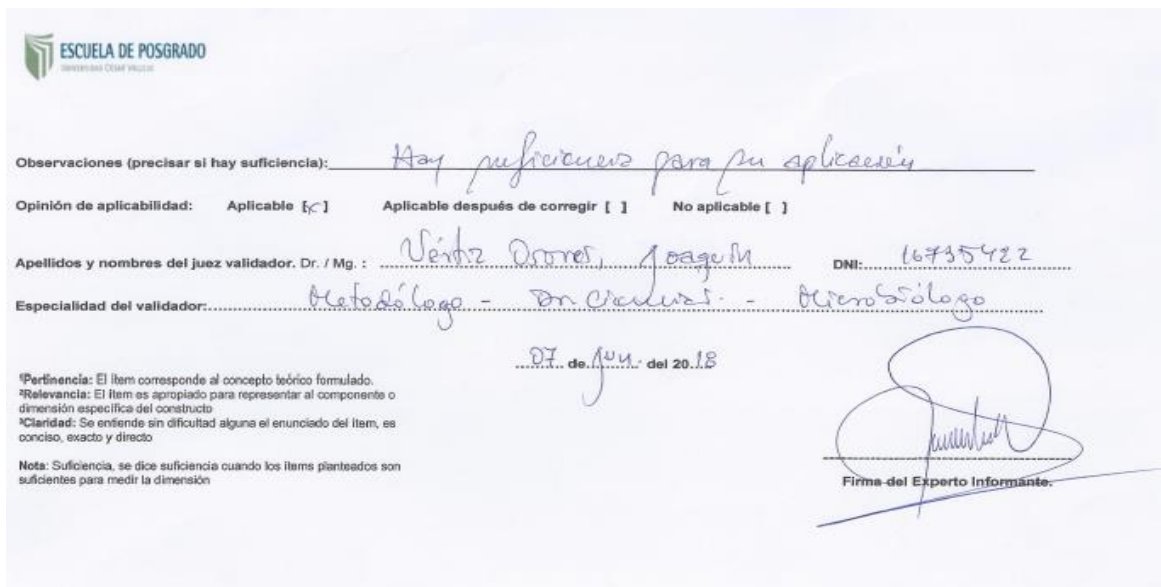 ESCUELA DE POSGRADO
UNIVERSIDAD CÉSAR VALLEJO
Observaciones (precisar si hay suficiencia): Hay suficiencia para su aplicación
Opinión de aplicabilidad: Aplicable [x] Aplicable después de corregir [ ] No aplicable [ ]
Apellidos y nombres del juez validador. Dr. / Mg. : Vértiz Osores, Joaquín DNI: 16735422
Especialidad del validador: Metodólogo - Dr. Ciencias. - Microbiólogo
07 de Jun. del 2018
¹Pertinencia: El ítem corresponde al concepto teórico formulado.
²Relevancia: El ítem es apropiado para representar al componente o
dimensión específica del constructo
³Claridad: Se entiende sin dificultad alguna el enunciado del ítem, es
conciso, exacto y directo
Nota: Suficiencia, se dice suficiencia cuando los ítems planteados son
suficientes para medir la dimensión
Firma del Experto Informante.